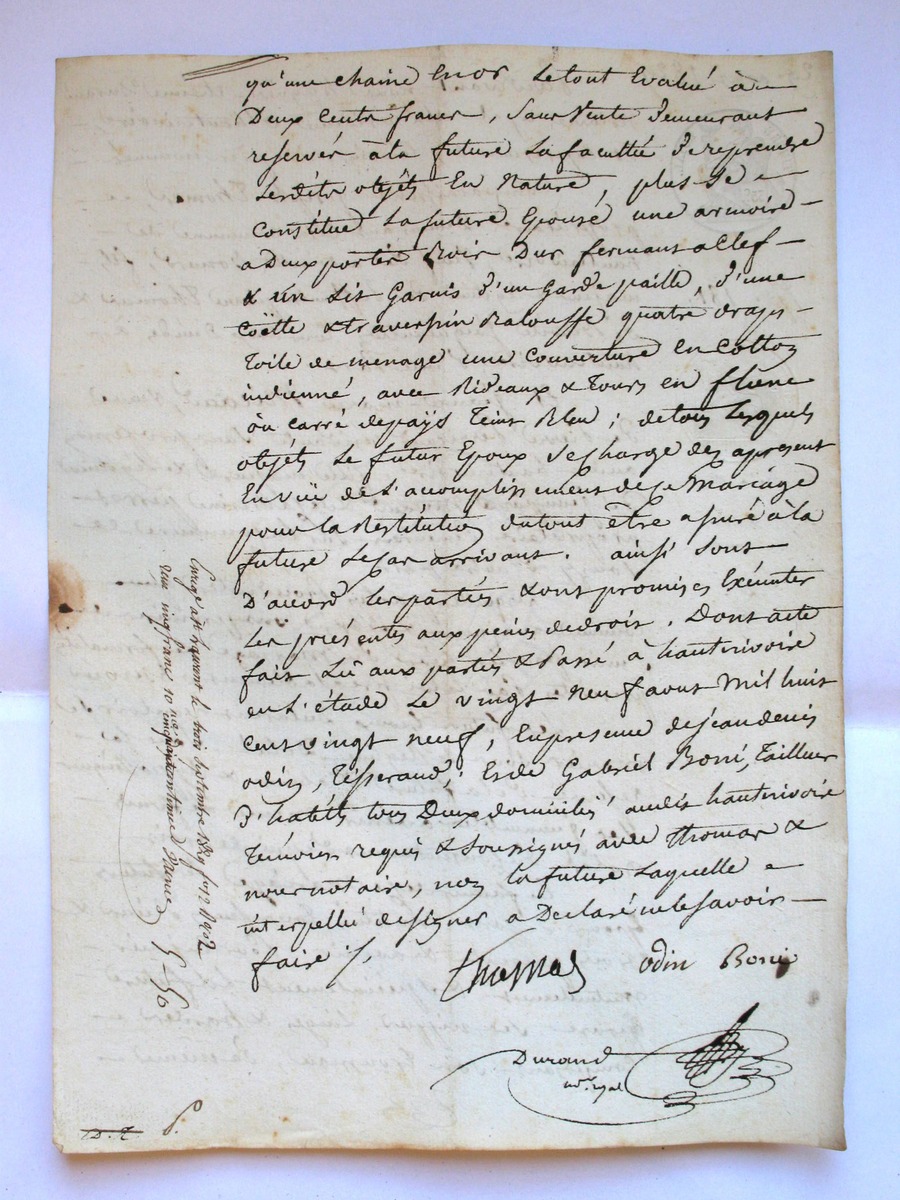 qu'une chaine en or le tout Evalué à
Deux cents francs, sans vente demeurant
reservés à la future la faculté de reprendre
Lesdits objets En Nature, plus Se
Constitue La future Epouse une armoire
a Deux portes Bois Dur fermant a Clef
& un Lit Garnis d'un Garde paille, d'une
Coëtte & traverspin Balouffe quatre draps
Toile de menage une Couverture En Cotton
indienne, avec Rideaux & Tours en
ou carré de pays Teint Bleu ; de tous Lesquels
objets Le futur Epoux Se charge des apresent
En vüe de L'accomplissement de ce Mariage
pour la Restitution du tout être assuré à la
future Le Cas arrivant. ainsi Sont
D'accord les parties & ont promises Exécuter
Les présentes aux peines de droit. Dont acte
fait Lû aux parties & Passé à hauterivoire
en L'étude Le vingt neuf aout Mil huit
Cent vingt neuf, En presence de jean denis
odin, Tisserand, Et de Gabriel Boni, Tailleur
D'habits tous Deux domiciliés audit hauterivoire
Temoins requis & Soussignés avec Thomas &
nous notaire, non la future Laquelle
interpellée de signer a Declaré ne le Savoir
faire ./.
Thomas odin Boni
Durand
not. royal
Enregé à St Laurent le trois septembre 1829 fo 92 Ro C 2
reçu cinq francs centimes
5-50
D. T. P.